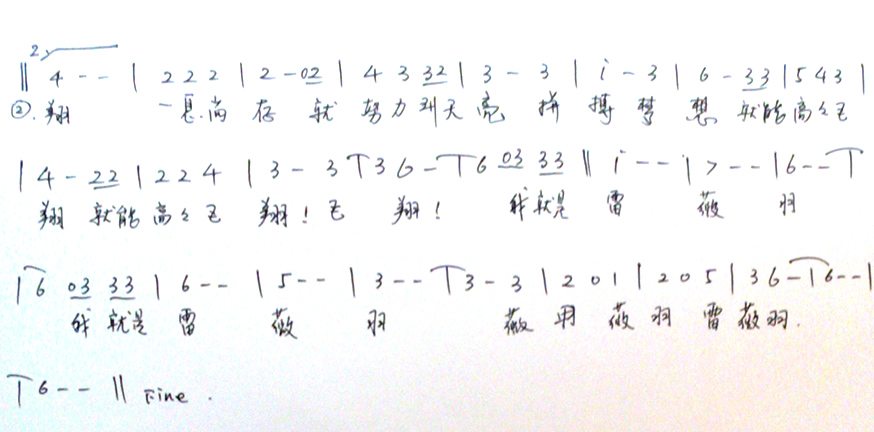 2.
‖ 4 - - | 2 2 2 | 2 - 02 | 4 3 32 | 3 - 3 | i - 3 | 6 - 33 | 5 4 3 |
②. 翔 一息尚存 就努力到天亮 拼搏梦想 就能高々飞
| 4 - 22 | 2 2 4 | 3 - 3 | 3 6 - | 6 03 33 ‖ i - - | 7 - - | 6 - - |
翔 就能高々飞翔！飞翔！ 我就是雷薇羽
| 6 03 33 | 6 - - | 5 - - | 3 - - | 3 - 3 | 2 0 1 | 2 0 5 | 3 6 - | 6 - - |
我就是雷薇羽 薇羽薇羽雷薇羽.
| 6 - - ‖ Fine .